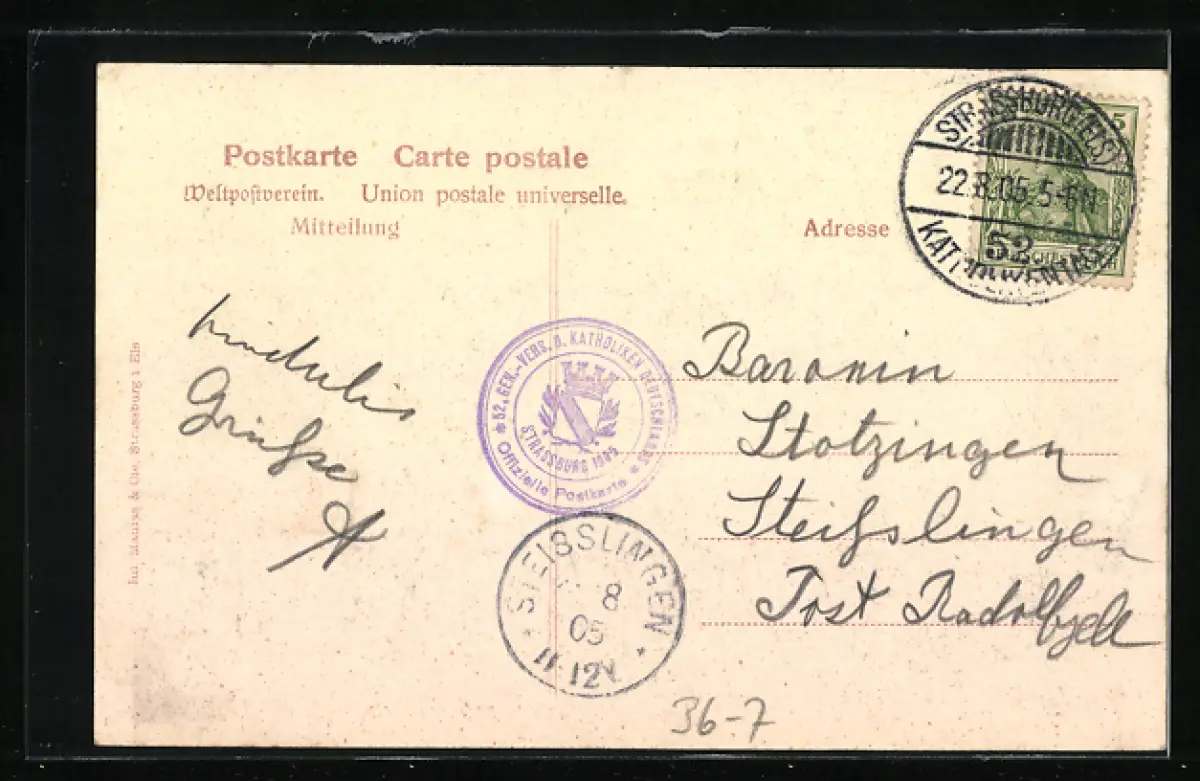 Postkarte Carte postale
Weltpostverein. Union postale universelle.
Mitteilung
Adresse
5
STRASSBURG (ELS)
22.8.05.5-6N
52
KATHOLIKENTAG
Grüsse
52. GEN.-VERS. D. KATHOLIKEN DEUTSCHLANDS
STRASSBURG 1905
Offizielle Postkarte
Baronin
Stotzingen
Steißlingen
Post Radolfzell
STEISSLINGEN
8
05
11-12V
36-7
& Cie, Strassburg i Els